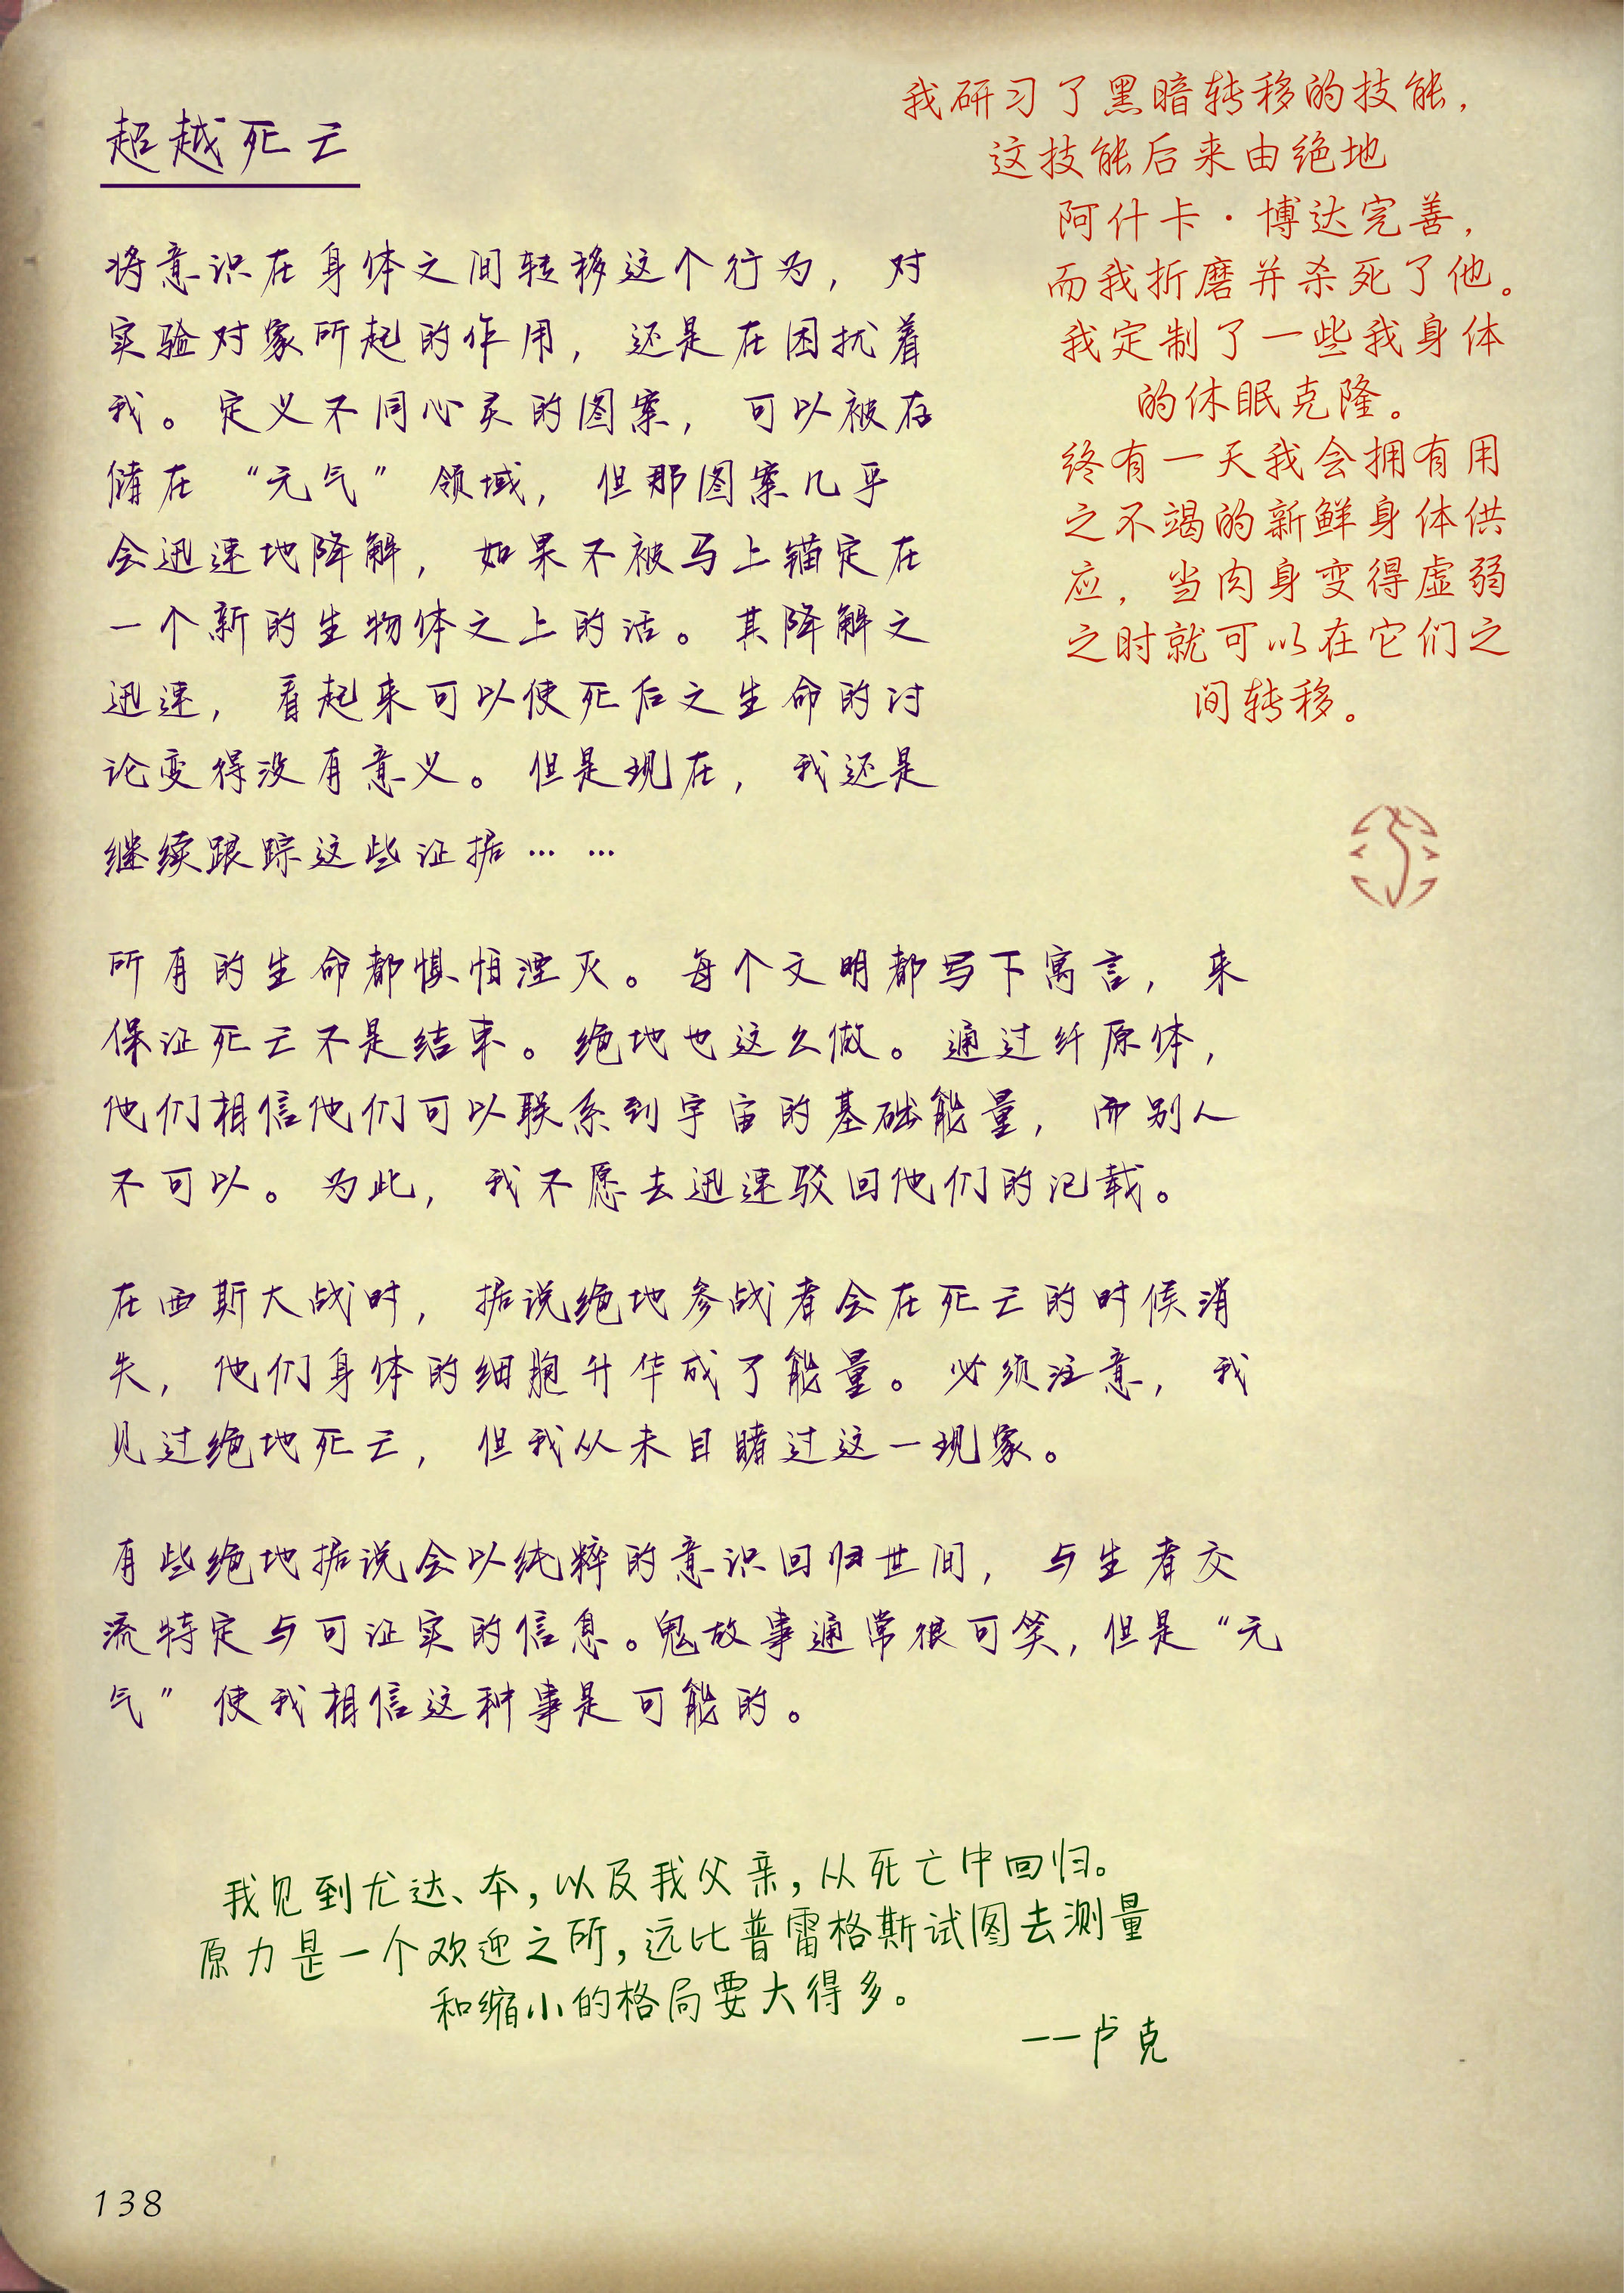 超越死亡
将意识在身体之间转移这个行为，对
实验对象所起的作用，还是在困扰着
我。定义不同心灵的图案，可以被存
储在“元气”领域，但那图案几乎
会迅速地降解，如果不被马上锚定在
一个新的生物体之上的话。其降解之
迅速，看起来可以使死后之生命的讨
论变得没有意义。但是现在，我还是
继续跟踪这些证据……
我研习了黑暗转移的技能，
这技能后来由绝地
阿什卡·博达完善，
而我折磨并杀死了他。
我定制了一些我身体
的休眠克隆。
终有一天我会拥有用
之不竭的新鲜身体供
应，当肉身变得虚弱
之时就可以在它们之
间转移。
所有的生命都惧怕湮灭。每个文明都写下寓言，来
保证死亡不是结束。绝地也这么做。通过纤原体，
他们相信他们可以联系到宇宙的基础能量，而别人
不可以。为此，我不愿去迅速驳回他们的记载。
在西斯大战时，据说绝地参战者会在死亡的时候消
失，他们身体的细胞升华成了能量。必须注意，我
见过绝地死亡，但我从未目睹过这一现象。
有些绝地据说会以纯粹的意识回归世间，与生者交
流特定与可证实的信息。鬼故事通常很可笑，但是“元
气”使我相信这种事是可能的。
我见到尤达、本，以及我父亲，从死亡中回归。
原力是一个欢迎之所，远比普雷格斯试图去测量
和缩小的格局要大得多。
——卢克
138